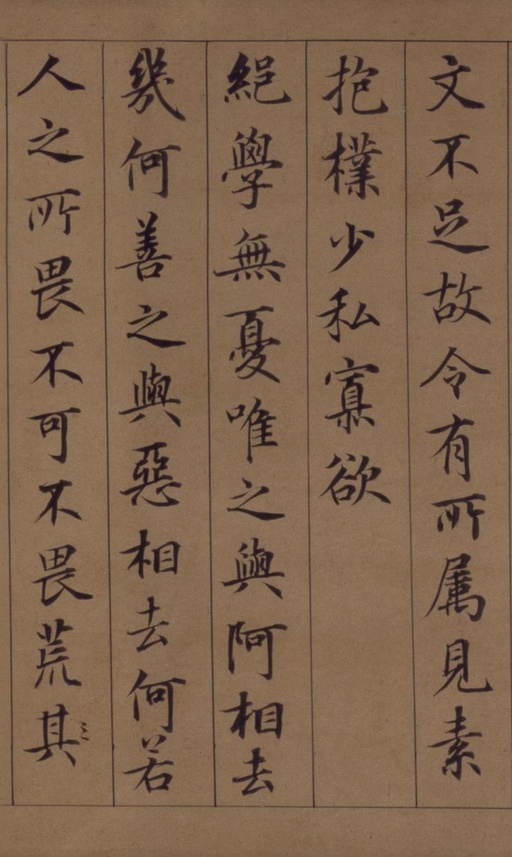 文不足故令有所属見素
抱樸少私寡欲
絕學無憂唯之與阿相去
幾何善之與惡相去何若
人之所畏不可不畏荒其